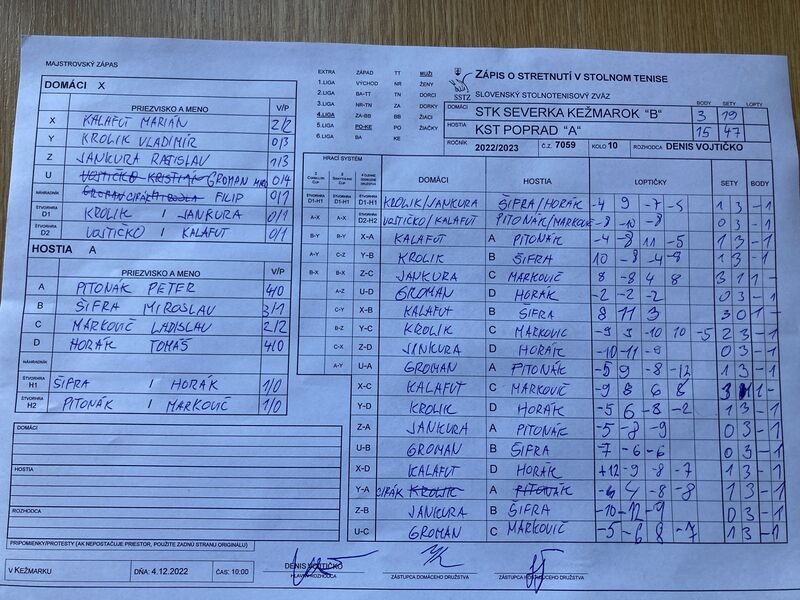 MAJSTROVSKÝ ZÁPAS
EXTRA ZÁPAD TT MUŽI
1.LIGA VÝCHOD NR ŽENY
2.LIGA BA-TT TN DORCI
3.LIGA NR-TN ZA DORKY
4.LIGA ZA-BB BB ŽIACI
5.LIGA PO-KE PO ŽIAČKY
6.LIGA BA KE
SSTZ
ZÁPIS O STRETNUTÍ V STOLNOM TENISE
SLOVENSKÝ STOLNOTENISOVÝ ZVÄZ
BODY SETY LOPTY
DOMÁCI STK SEVERKA KEŽMAROK "B" 3 19
HOSTIA KST POPRAD "A" 15 47
ROČNÍK 2022/2023 Č.Z. 7059 KOLO 10 ROZHODCA DENIS VOJTIČKO
DOMÁCI X
PRIEZVISKO A MENO V/P
X KALAFUT MARIÁN 2/2
Y KROLIK VLADIMÍR 0/3
Z JANKURA RASTISLAV 1/3
U VOJTIČKO KRISTIÁN GROMAN 0/4
NÁHRADNÍK FILIP 0/1
ŠTVORHRA D1 KROLIK / JANKURA 0/1
ŠTVORHRA D2 VOJTIČKO / KALAFUT 0/1
HOSTIA A
PRIEZVISKO A MENO V/P
A PITONÁK PETER 4/0
B ŠIFRA MIROSLAV 3/1
C MARKOVIČ LADISLAV 2/2
D HORÁK TOMÁŠ 4/0
NÁHRADNÍK
ŠTVORHRA H1 ŠIFRA / HORÁK 1/0
ŠTVORHRA H2 PITONÁK / MARKOVIČ 1/0
HRACÍ SYSTÉM
DOMÁCI HOSTIA LOPTIČKY SETY BODY
ŠTVORHRA D1-H1 ŠTVORHRA D1-H1 ŠTVORHRA D1-H1 KROLIK/JANKURA ŠIFRA/HORÁK -4 9 -7 -5 1 3 -1
A-X A-X ŠTVORHRA D2-H2 VOJTIČKO/KALAFUT PITONÁK/MARKOVIČ -8 -10 -8 0 3 -1
B-Y B-Y X-A KALAFUT A PITONÁK -4 -8 11 -5 1 3 -1
A-Y C-Z Y-B KROLIK B ŠIFRA 10 -8 -4 -8 1 3 -1
B-X B-X Z-C JANKURA C MARKOVIČ 8 -8 4 8 3 1 1 -
A-Z U-D GROMAN D HORÁK -2 -2 -2 0 3 -1
C-Y X-B KALAFUT B ŠIFRA 8 11 3 3 0 1 -
B-Z Y-C KROLIK C MARKOVIČ -9 9 -10 10 -5 2 3 -1
C-X Z-D JANKURA D HORÁK -10 -11 -9 0 3 -1
A-Y U-A GROMAN A PITONÁK -5 9 -8 -12 1 3 -1
X-C KALAFUT C MARKOVIČ -9 8 6 8 3 1 1 -
Y-D KROLIK D HORÁK -5 6 -8 -2 1 3 -1
Z-A JANKURA A PITONÁK -5 -8 -9 0 3 -1
U-B GROMAN B ŠIFRA -7 -6 -6 0 3 -1
X-D KALAFUT D HORÁK +12 -9 -8 -7 1 3 -1
Y-A CIPÁK KROLIK A PITONÁK -6 4 -8 -8 1 3 -1
Z-B JANKURA B ŠIFRA -10 -12 -9 0 3 -1
U-C GROMAN C MARKOVIČ -5 -6 8 -7 1 3 -1
DOMÁCI
HOSTIA
ROZHODCA
PRIPOMIENKY/PROTESTY (AK NEPOSTAČUJE PRIESTOR, POUŽITE ZADNÚ STRANU ORIGINÁLU)
V KEŽMARKU DŇA: 4.12.2022 ČAS: 10:00
DENIS VOJTIČKO
HLAVNÝ ROZHODCA ZÁSTUPCA DOMÁCEHO DRUŽSTVA ZÁSTUPCA HOSŤUJÚCEHO DRUŽSTVA